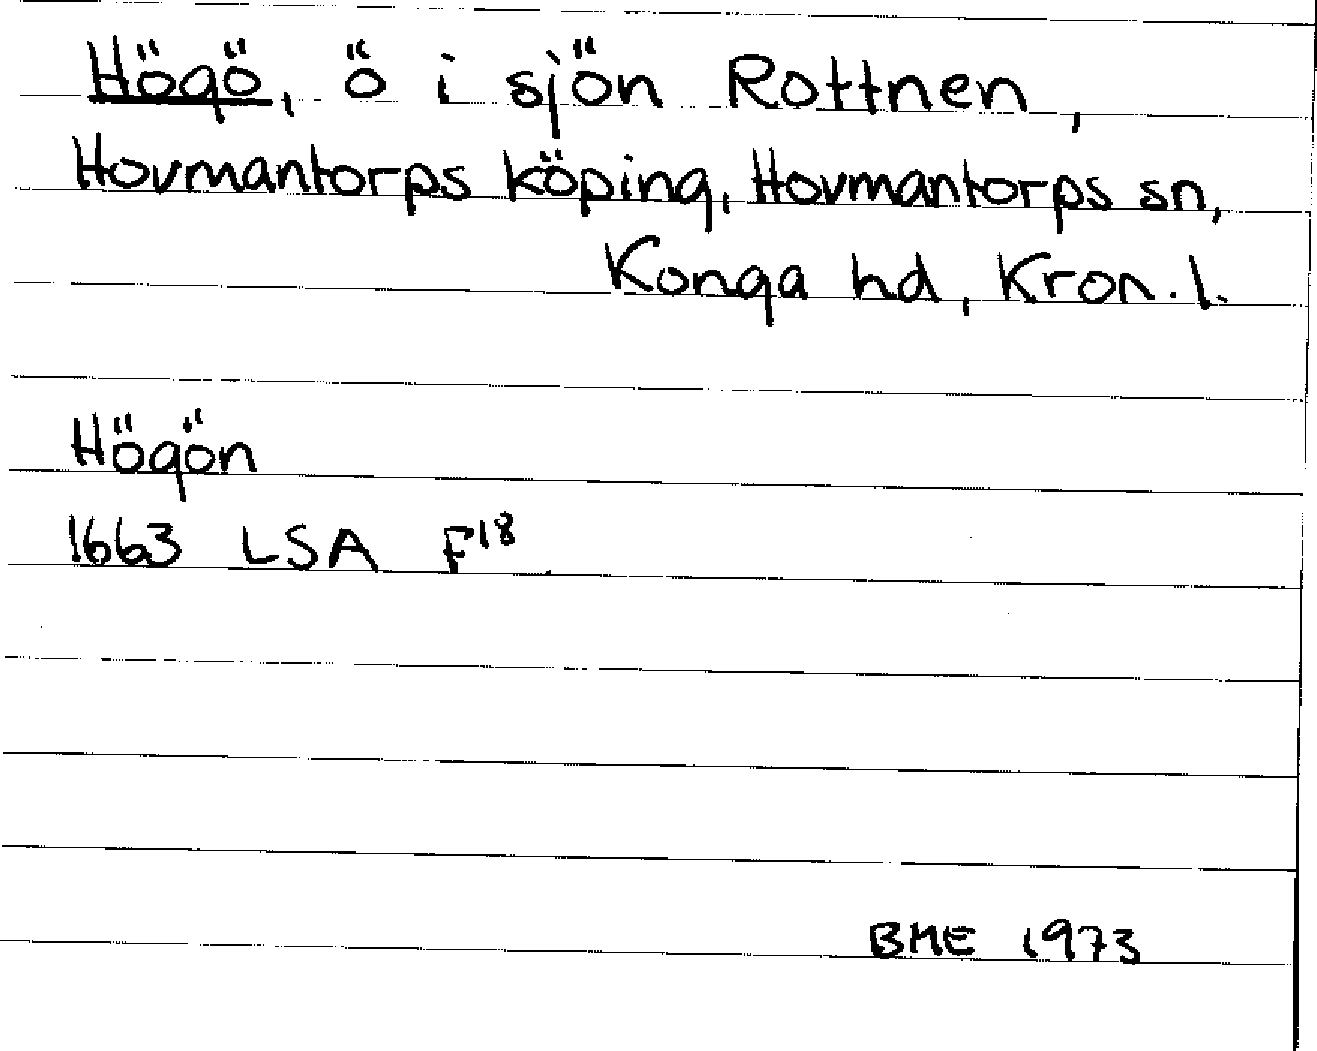 Högö, ö i sjön Rottnen,
Hovmantorps köping, Hovmantorps sn,
Konga hd, Kron. l.
Högön
1663 LSA F18
BME 1973